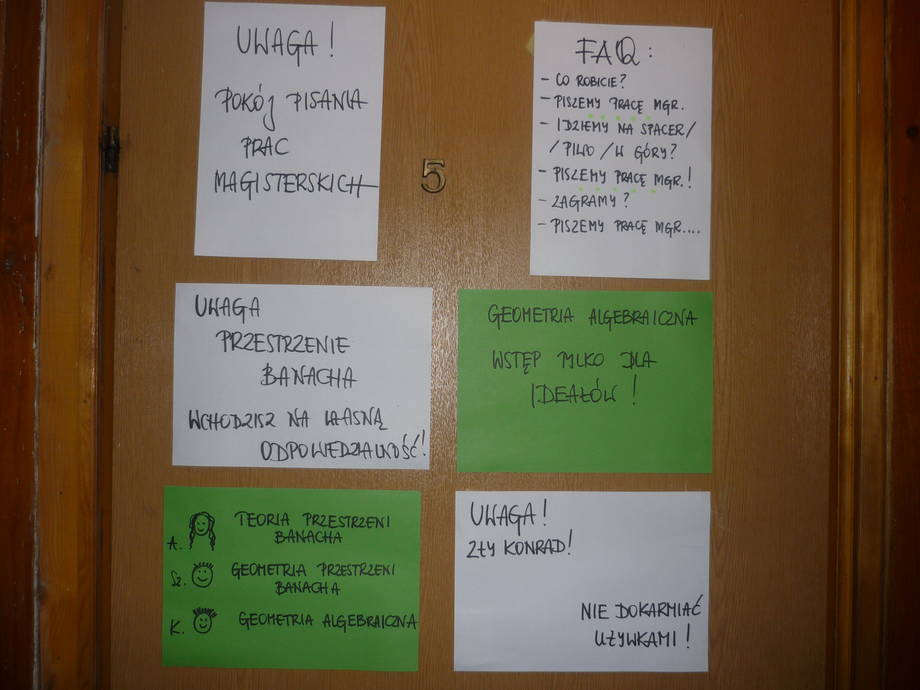 UWAGA !
POKÓJ PISANIA
PRAC
MAGISTERSKICH
5
FAQ :
- CO ROBICIE?
- PISZEMY PRACĘ MGR.
- IDZIEMY NA SPACER/
/PIWO/W GÓRY?
- PISZEMY PRACĘ MGR.!
- ZAGRAMY?
- PISZEMY PRACĘ MGR....
UWAGA
PRZESTRZENIE
BANACHA
WCHODZISZ NA WŁASNĄ
ODPOWIEDZIALNOŚĆ!
GEOMETRIA ALGEBRAICZNA
WSTĘP TYLKO DLA
IDEAŁÓW !
A. TEORIA PRZESTRZENI
BANACHA
Sz. GEOMETRIA PRZESTRZENI
BANACHA
K. GEOMETRIA ALGEBRAICZNA
UWAGA!
ZŁY KONRAD!
NIE DOKARMIAĆ
UŻYWKAMI!